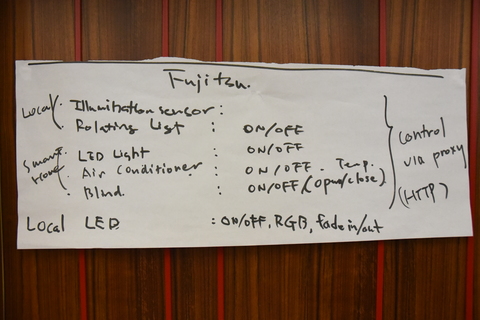 Fujitsu.
Local Illumination sensor :
Rotating Light : ON/OFF
Smart Home LED Light : ON/OFF
Air Conditioner : ON/OFF. Temp.
Blind : ON/OFF (Open/close)
Control via proxy (HTTP)
Local LED : ON/OFF, RGB, fade in/out